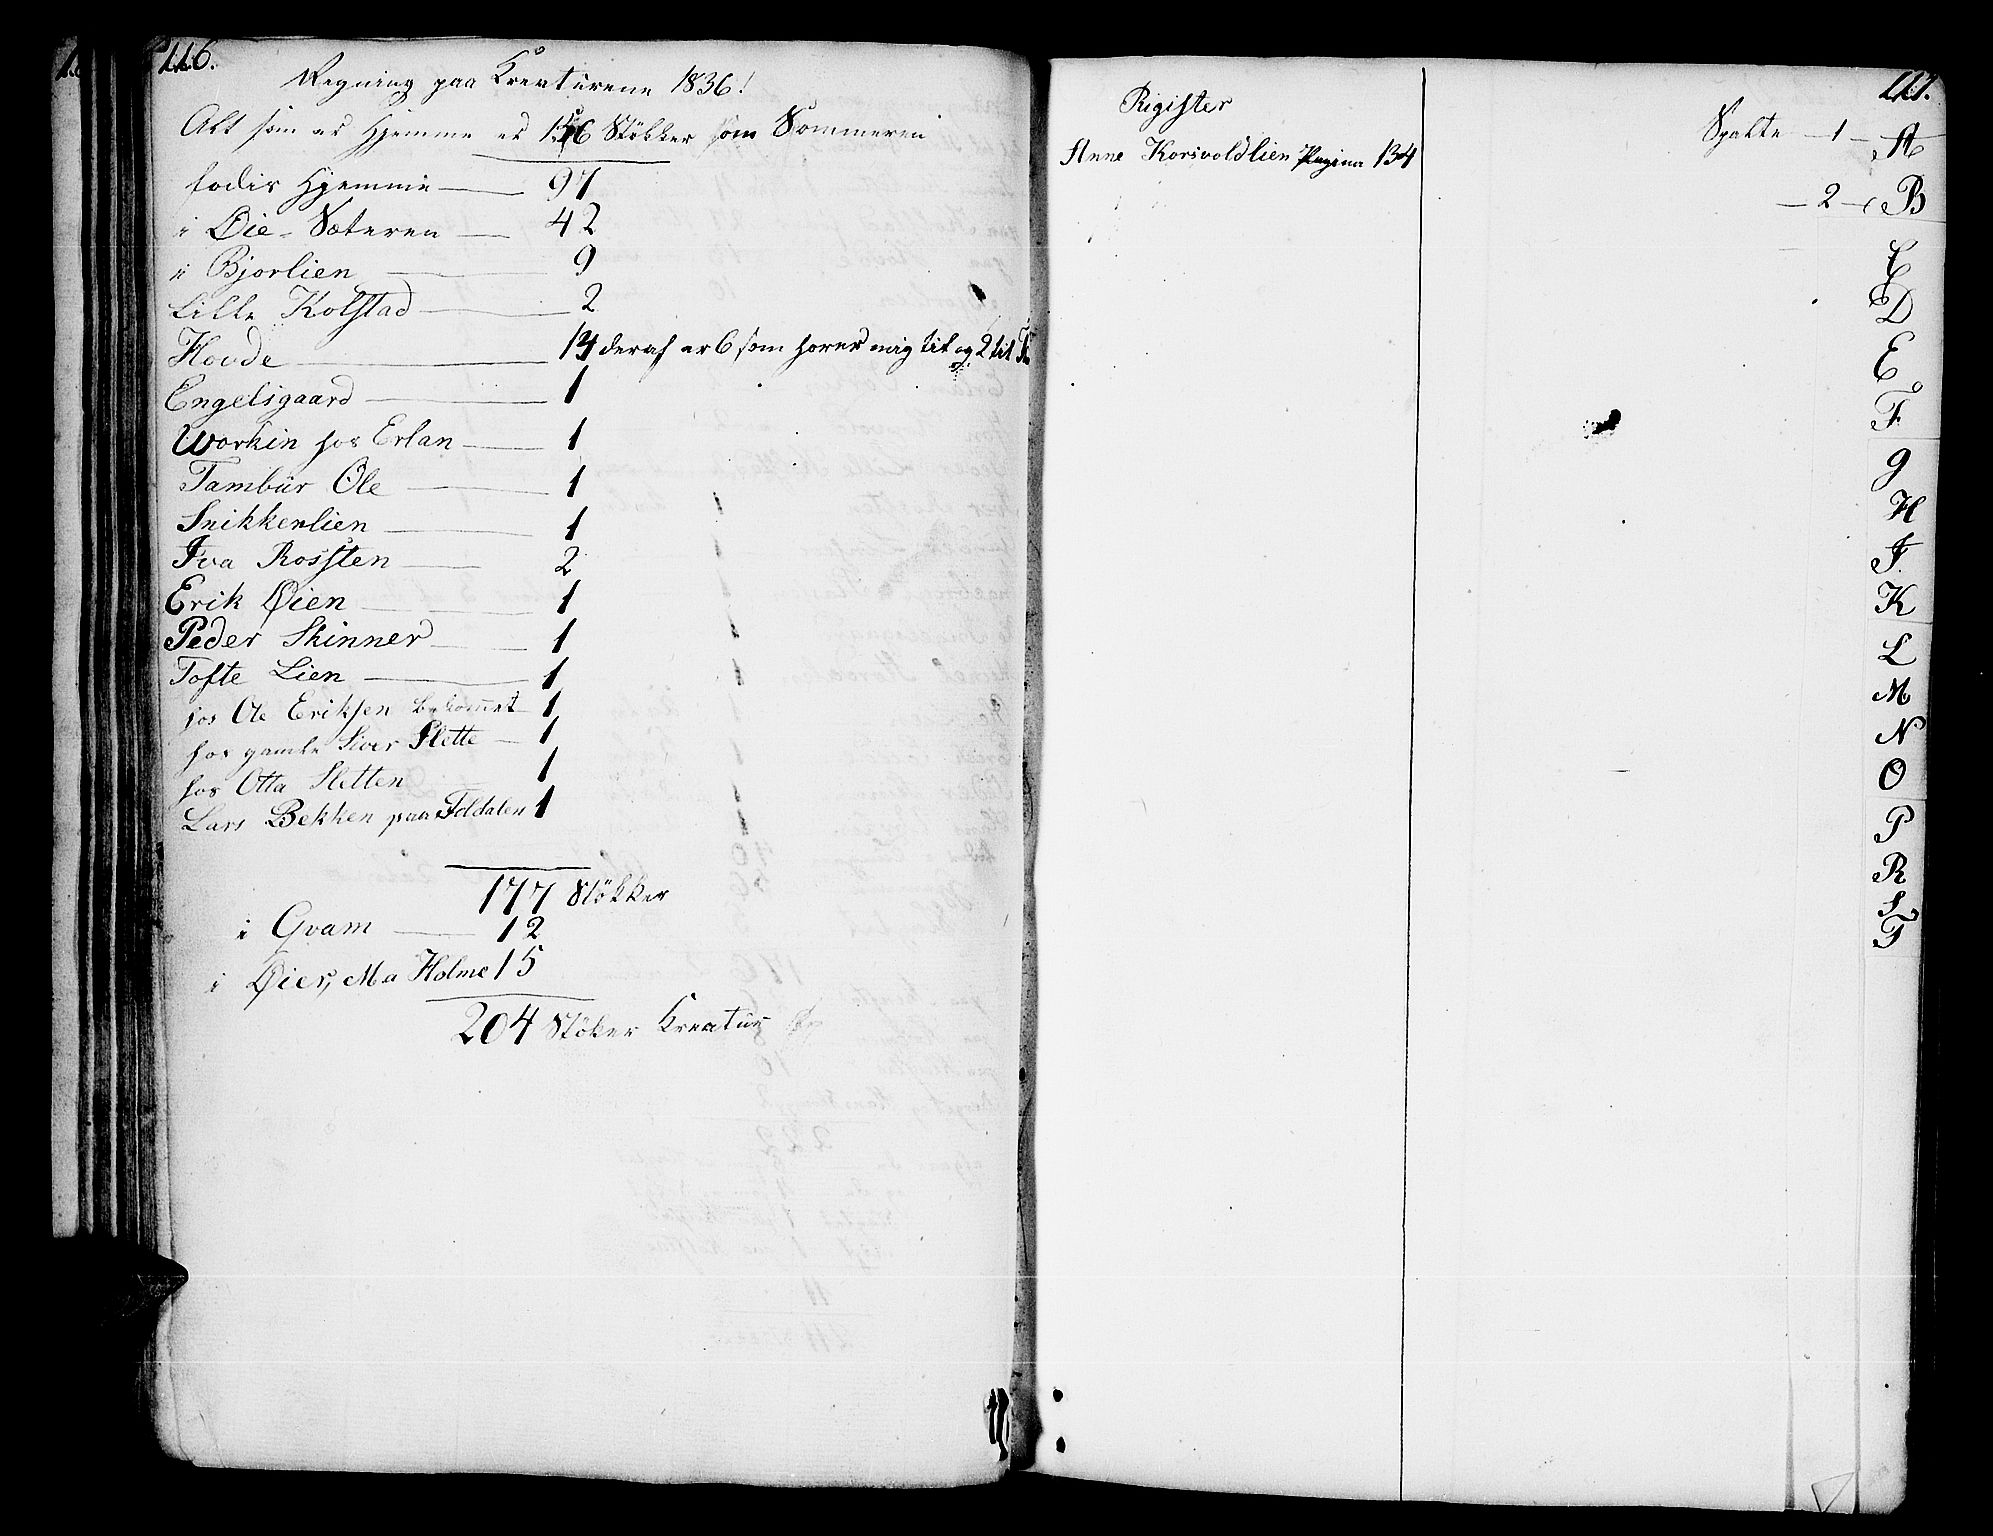 116.
Regning paa Kreaturene 1836!
Alt som er Hjemme er 156 Stökker som Sommeren
fodis Hjemme 97
i Øie-Sæteren 42
i Bjorlien 9
Lille Kolstad 2
Hovde 14 deraf er 6 som hører mig til og 2 til
Engelsgaard 1
Workin hos Erlan 1
Tambur Ole 1
Snikkerlien 1
Iva Rossten 2
Erik Øien 1
Peder Skinner 1
Tofte Lien 1
hos Ole Eriksen bekommet 1
hos gamle Siver Slette 1
hos Otta Sletten 1
Lars Bekken paa Foldalen 1
177 Stökker
i Qvam 12
i Øier, Ma Holme 15
204 Stöker Kreatur
117.
Rigister
Spalte - 1 - A
Anne Korsvoldlien Pagina 134
- 2 - B
C
D
E
F
G
H
I
K
L
M
N
O
P
R
S
T